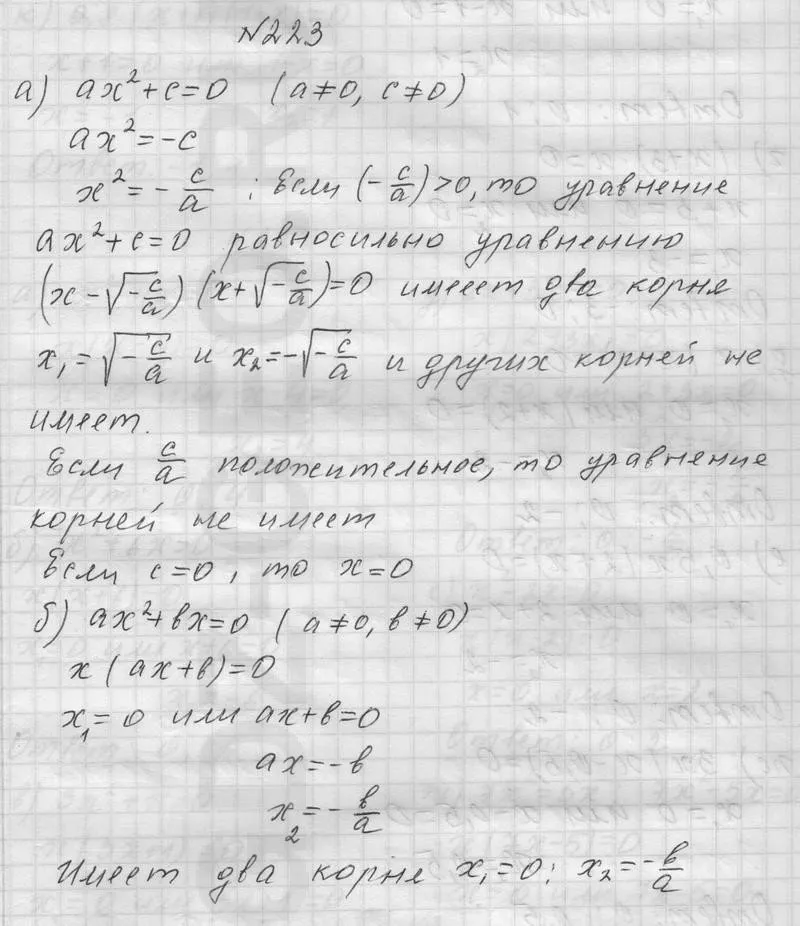 №223
а) ax²+c=0 (a≠0, c≠0)
ax²=-c
x²=-c/a ; Если (-c/a)>0, то уравнение
ax²+c=0 равносильно уравнению
(x-√(-c/a)) (x+√(-c/a))=0 имеет два корня
x₁=√(-c/a) и x₂=-√(-c/a) и других корней не
имеет.
Если c/a положительное, то уравнение
корней не имеет
Если c=0, то x=0
б) ax²+вx=0 (a≠0, в≠0)
x(ax+в)=0
x₁=0 или ax+в=0
ax=-в
x₂=-в/a
Имеет два корня x₁=0; x₂=-в/a